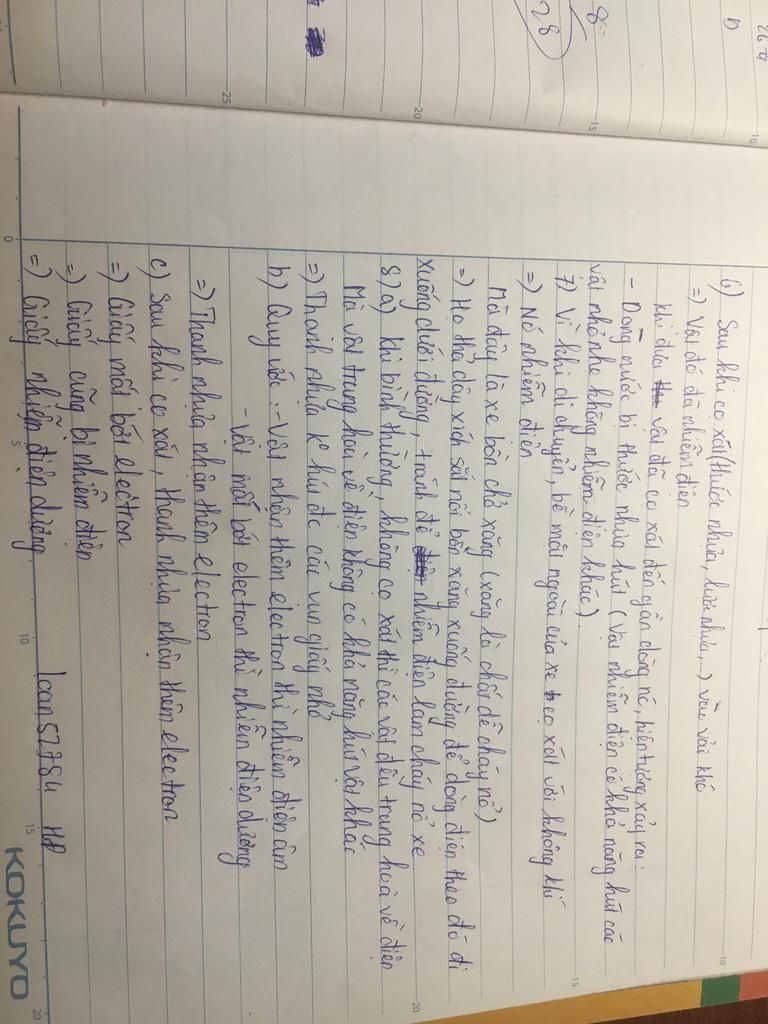 26 a
D
8
28
10
15
20
25
6) Sau khi cọ xát (thước nhựa, lược nhựa,...) vào vải khô
=) Vật đó đã nhiễm điện
Khi đưa vật đã cọ xát đến gần dòng nc, hiện tượng xảy ra:
- Dòng nước bị thước nhựa hút (Vật nhiễm điện có khả năng hút các
vật nhỏ nhẹ không nhiễm điện khác)
7) Vì khi di chuyển, bề mặt ngoài của xe cọ xát với không khí
=) Nó nhiễm điện
Mà đây là xe bồn chở xăng (xăng là chất dễ cháy nổ)
=) Họ thả dây xích sắt nối bồn xăng xuống đường để dòng điện theo đó đi
xuống dưới đường, tránh để nhiễm điện làm cháy nổ xe.
8) a) Khi bình thường, không cọ xát thì các vật đều trung hoà về điện
Mà vật trung hoà về điện không có khả năng hút vật khác
=) Thanh nhựa k hút đc các vụn giấy nhỏ
b) Quy ước: - Vật nhận thêm electron thì nhiễm điện âm
- Vật mất bớt electron thì nhiễm điện dương
=) Thanh nhựa nhận thêm electron
c) Sau khi cọ xát, thanh nhựa nhận thêm electron
=) Giấy mất bớt electron
=) Giấy cũng bị nhiễm điện
=) Giấy nhiễm điện dương
loan52784 HĐ
0
5
10
15
20
KOKUYO
10
15
20